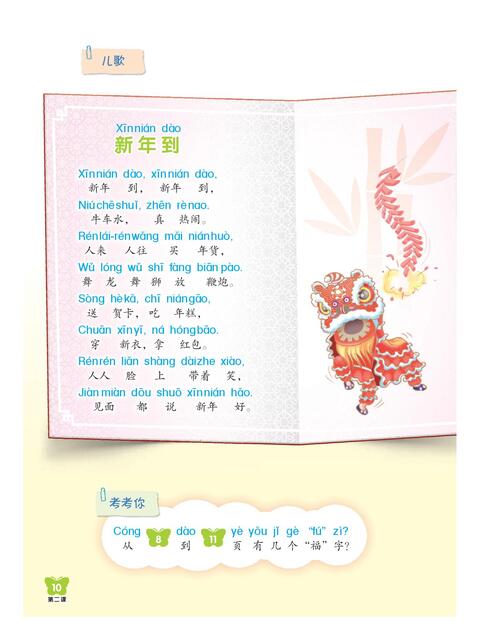 儿歌
Xīnnián dào
新年到
Xīnnián dào, xīnnián dào,
新年 到, 新年 到,
Niúchēshuǐ, zhēn rènao.
牛车水, 真 热闹。
Rénlái-rénwǎng mǎi niánhuò,
人来 人往 买 年货,
Wǔ lóng wǔ shī fàng biānpào.
舞 龙 舞 狮 放 鞭炮。
Sòng hèkǎ, chī niángāo,
送 贺卡, 吃 年糕,
Chuān xīnyī, ná hóngbāo.
穿 新衣, 拿 红包。
Rénrén liǎn shàng dàizhe xiào,
人人 脸 上 带着 笑,
Jiànmiàn dōu shuō xīnnián hǎo.
见面 都 说 新年 好。
考考你
Cóng 8 dào 11 yè yǒu jǐ gè “fú” zì?
从 到 页 有 几 个 “福” 字?
10
第二课